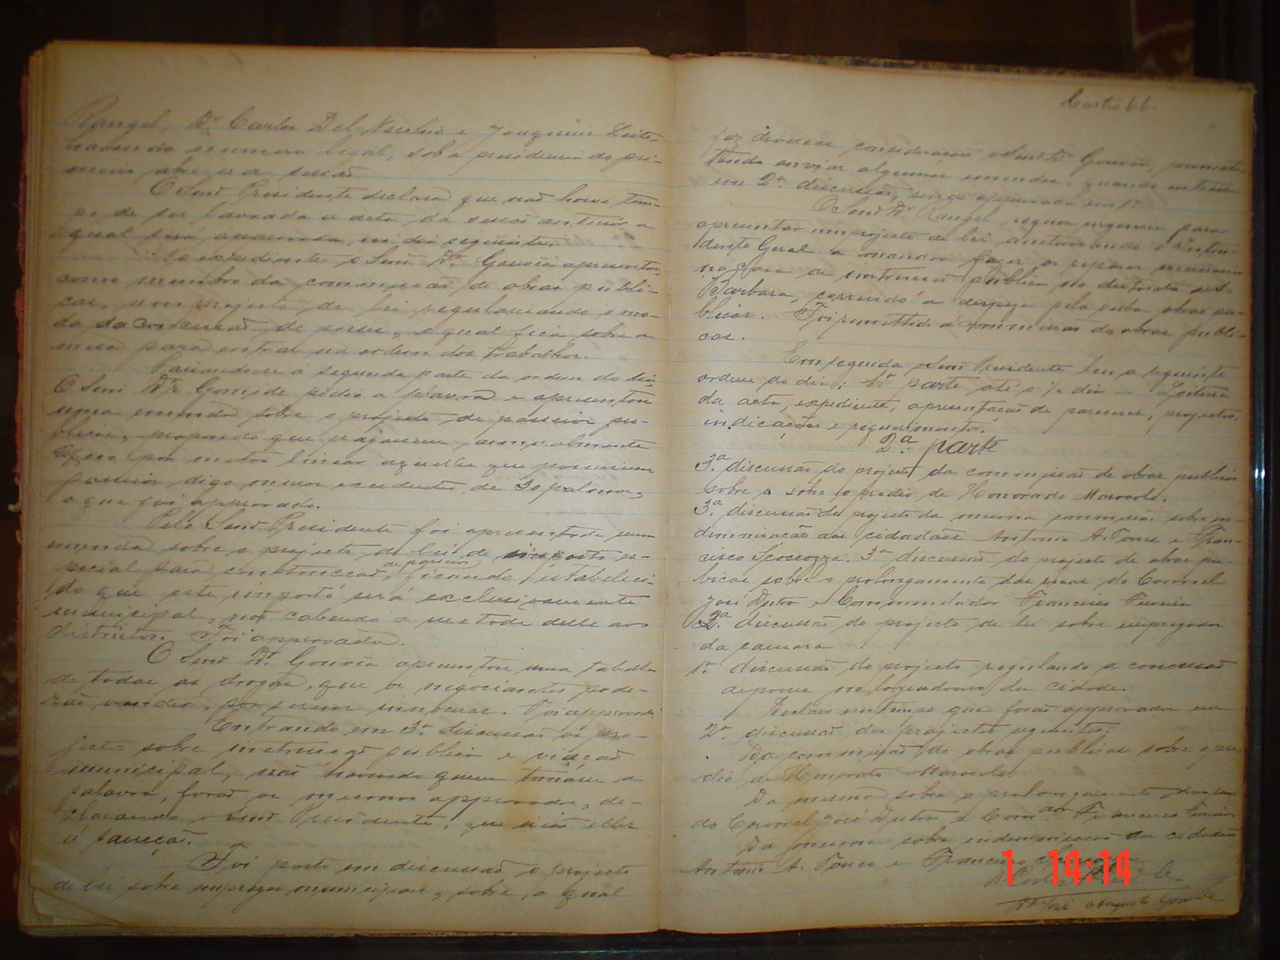 Rangel, Dr. Carlos Del Negro e Joaquim Leite,
havendo numero legal, sob a presidencia do pri-
meiro abre-se a sessão.
O Senr. Presidente declara que não houve tem-
po de ser lavrada a acta da sessão anterior, a
qual será no dia seguinte.
expediente o Senr. Dr. Gouvêa apresentou,
como membro da commissão de obras publi-
cas, um projecto de lei regulando o mo-
do da concessão de , o qual fica sobre a
mesa para entrar na ordem dos trabalhos.
Passando-se á segunda parte da ordem do dia,
O Senr. Dr. Gomide pedio a palavra e apresentou
uma emenda sobre o projecto de passeios pu-
blicos, propondo que paguem annualmente
por metro linear aquelles que possuirem
passeios, digo menos excedentes de 30 palmos,
o que foi approvado.
Pelo Senr. Presidente foi apresentada uma
emenda sobre o projecto de lei de imposto es-
pecial para construcção de passeios, ficando estabeleci-
do que este imposto será exclusivamente
municipal, não cabendo a metade desse aos
districtos. Foi approvada.
O Senr. Dr. Gouvêa apresentou uma tabella
de todas as drogas, que os negociantes pode-
rão vender, por serem innocuas. Foi approvada.
Entrando em 3ª discussão os pro-
jectos sobre instrucção publica e viação
municipal, não havendo quem tomasse a
palavra, forão os mesmos approvados, de-
clarando o Senr. Presidente, que irião elles
á sancção.
Foi posto em discussão o projecto
de lei sobre empregos municipaes, sobre o qual
Castro 66.
fez diversas considerações o Senr. Dr. Gouvêa, promet-
tendo enviar algumas emendas, quando entrasse
em 2ª discussão,
O Senr. Dr. Rangel, requer urgencia para
apresentar um projecto de lei auctorisando o Inten-
dente Geral a mandar fazer os reparos necessarios
na casa de instrucção publica no districto de S.
Barbara, correndo a despeza pela verba obras pu-
blicas. Foi remettido á commissão de obras publi-
cas.
Em seguida o Senr. Presidente leu a seguinte
ordem do dia: 1ª parte até o ½ dia - Leitura
da acta, expediente, apresentação de pareceres, projectos,
indicações e requerimentos.
2ª parte
3ª discussão do projecto da commissão de obras publicas
sobre a sobre o predio de Honorato Marocolo.
3ª discussão do projecto da mesma commissão sobre in-
demnisação aos cidadãos Antonio A. Ponce e Fran-
cisco . 3ª discussão do projecto de obras pu-
blicas sobre o prolongamento das ruas do Coronel
José Dutra e Commendador Francisco Ferreira
2ª discussão do projecto de lei sobre empregados
da camara.
1ª discussão do projecto regulando a concessão
de nos logradouros da cidade.
Declaro em tempo que forão approvados em
2ª discussão dos projectos seguintes:
Da commissão de obras publicas sobre o pre-
dio de Honorato Marocolo.
Da mesma sobre o prolongamento das ruas
do Coronel José Dutra e Comdor. Francisco Ferreira
Da mesma sobre indemnisação aos cidadãos
Antonio A. Ponce e Francisco
Dr. José Augusto Gomide
1 14:14